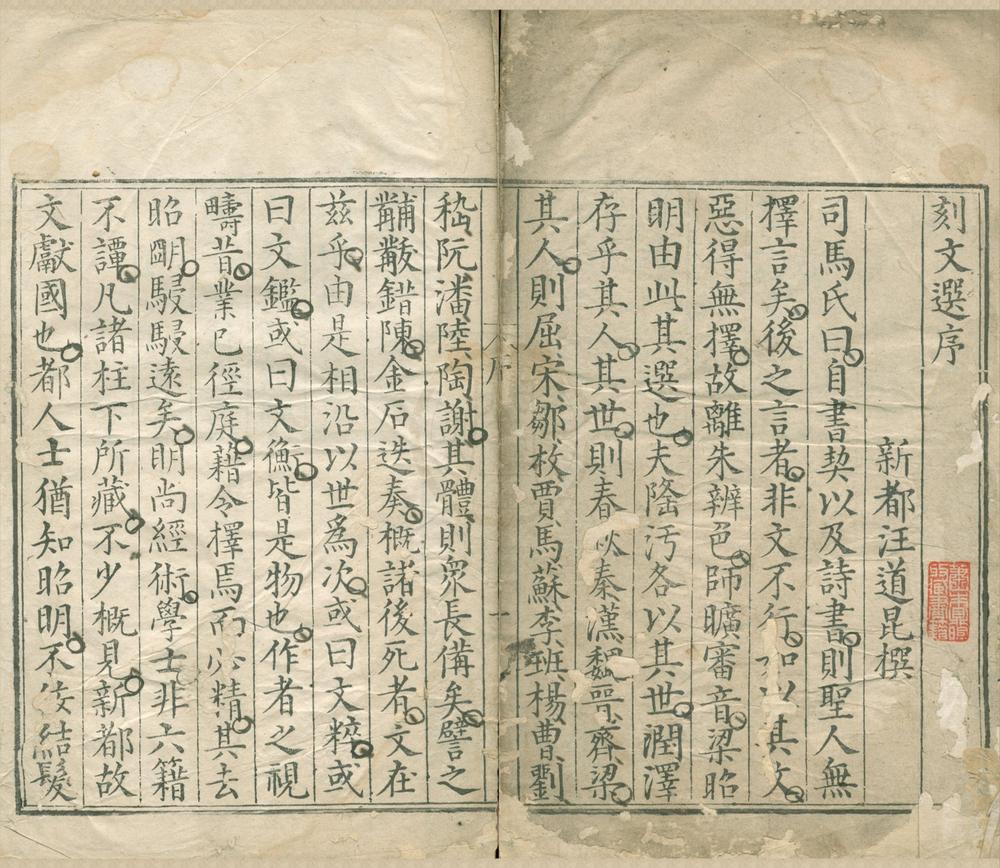 刻文選序
新都汪道昆撰
司馬氏曰自書契以及詩書則聖人無
擇言矣後之言者非文不行如以其文
惡得無擇故離朱辨色師曠審音梁昭
明由此其選也夫隆汚各以其世潤澤
存乎其人其世則春秋秦漢魏晉齊梁
其人則屈宋鄒枚賈馬蘇李班楊曹劉
嵇阮潘陸陶謝其體則衆長備矣譬之
黼黻錯陳金石迭奏概諸後死者文在
茲乎由是相沿以世爲次或曰文粹或
曰文鑑或曰文衡皆是物也作者之視
疇昔業已徑庭藉令擇焉而少精其去
昭明駸駸遠矣明尚經術學士非六籍
不譚凡諸柱下所藏不少概見新都故
文獻國也都人士猶知昭明不佞結髮